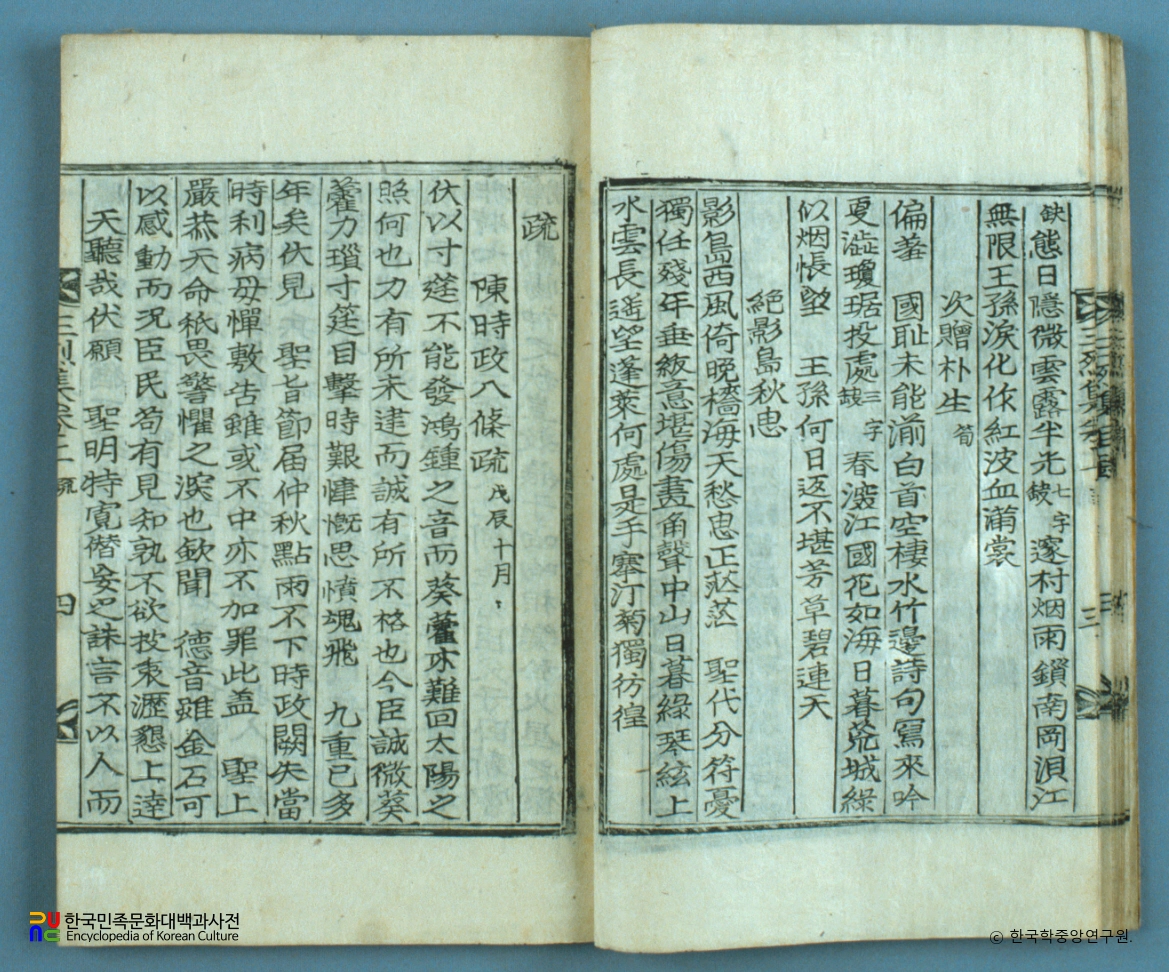 缺態日隱微雲露半光缺七字邃村烟雨鎖南岡浿江
無限王孫淚化作紅波血滿裳
次贈朴生筍
偏荖 國耻未能湔白首空棲水竹邊詩句寫來吟
夏澁瓊琚投處缺三字春波江國花如海日暮荒城綠
似烟悵望 王孫何日返不堪芳草碧連天
絕影島秋思
影島西風倚晚橋海天愁思正茫茫 聖代分符憂
獨任殘年垂紱意堪傷畫角聲中山日暮綠琴絃上
水雲長遙望蓬萊何處是手搴汀菊獨彷徨
三
疏
陳時政八條疏戊辰十月
伏以寸莛不能發鴻鍾之音而葵藿亦難回太陽之
照何也力有所未逮而誠有所不格也今臣誠微葵
藿力瑣寸筳目擊時艱慷慨思憤魂飛 九重已多
年矣伏見 聖旨節届仲秋點雨不下時政闕失當
時利病毋憚敷告雖或不中亦不加罪此盖 聖上
嚴恭天命祇畏警懼之深也欽聞 德音雖金石可
以感動而況臣民苟有見知孰不欲披衷瀝懇上達
天聽哉伏願 聖明特寬僭妄之誅言不以人而
三烈集卷之二 疏 四
한국민족문화대백과사전
Encyclopedia of Korean Culture
© 한국학중앙연구원.